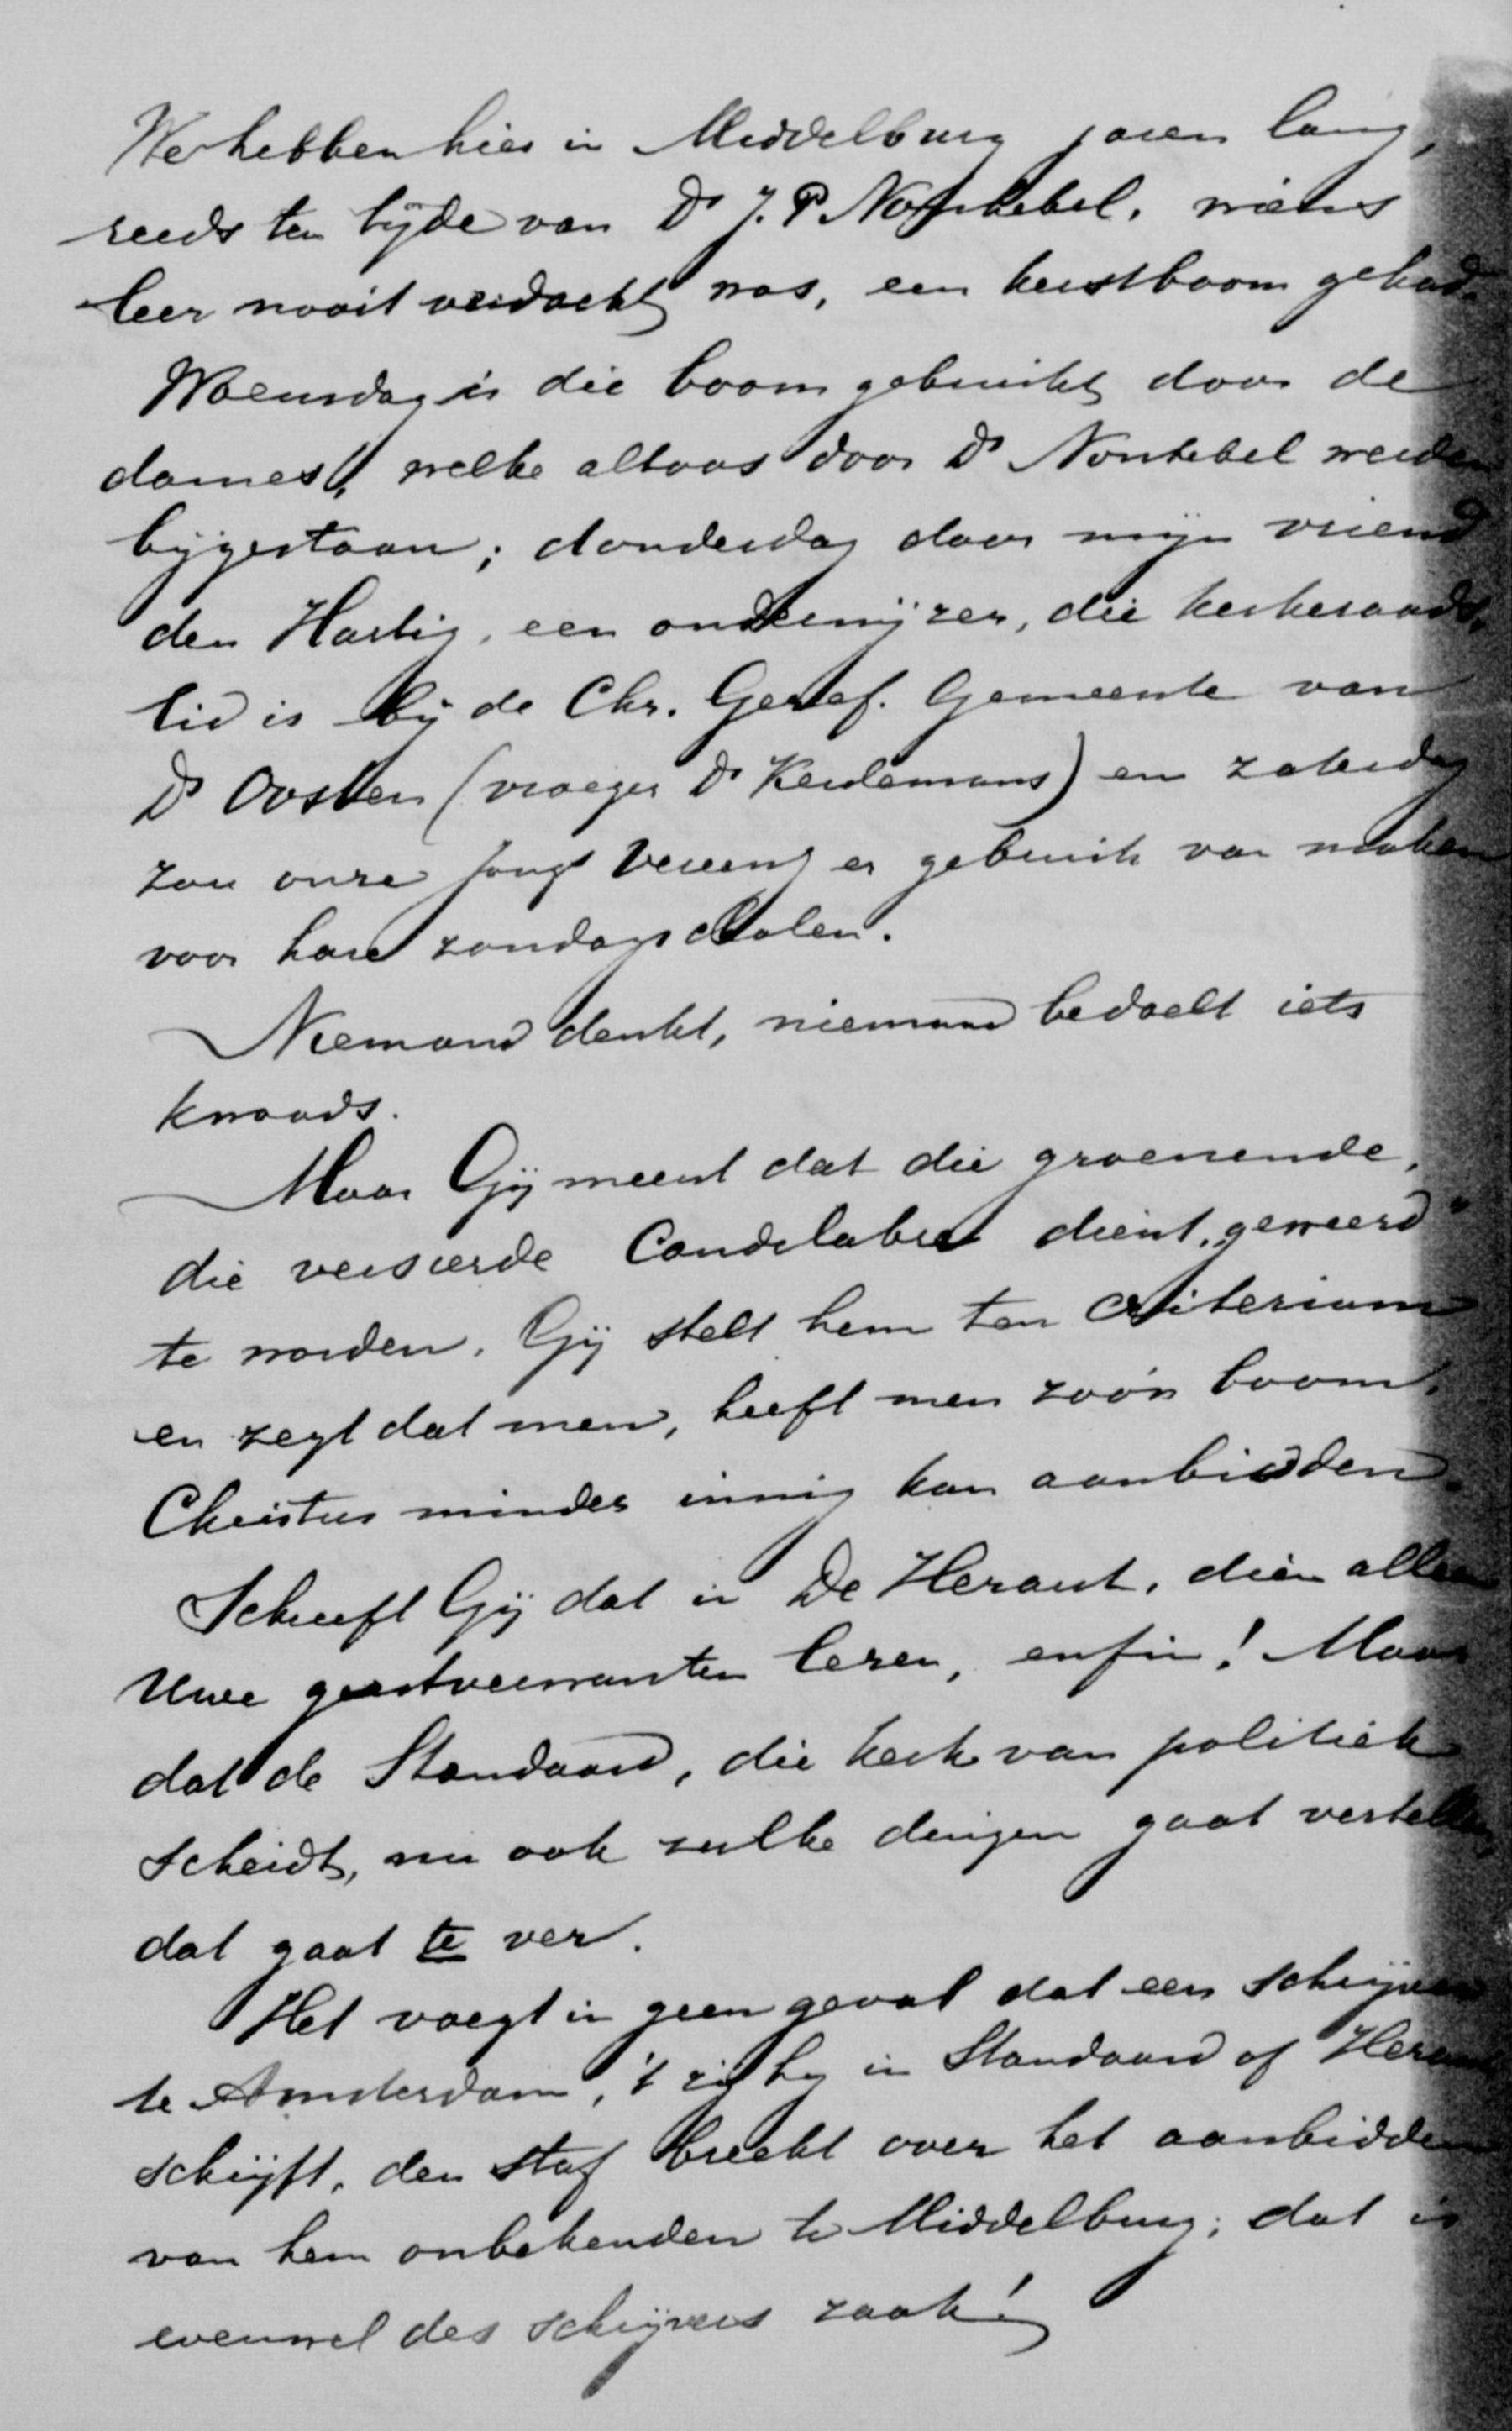 We hebben hier in Middelburg jaren lang,
reeds ten tijde van Ds J. P. Nonhebel, wiens
leer nooit verdacht was, een kerstboom gehad.
Woensdag is die boom gebruikt door de
dames, welke altoos door Ds Nonhebel werden
bijgestaan; donderdag door mijn vriend
den Hartig, een onderwijzer, die kerkeraads-
lid is bij de Chr. Geref. Gemeente van
Ds Oosten (vroeger Ds Keulemans) en zaterdag
zou onze Jongl Vereenig er gebruik van maken
voor hare zondagscholen.
Niemand denkt, niemand bedoelt iets
kwaads.
Maar Gij meent dat die groenende,
die versierde Candelabre dient "geweerd"
te worden. Gij stelt hem ten criterium
en zegt dat men, heeft men zoo'n boom,
Christus minder innig kan aanbidden.
Schreeft Gij dat in De Heraut, dien alleen
Uwe geestverwanten lezen, enfin! Maar
dat de Standaard, die kerk van politiek
scheidt, nu ook zulke dingen gaat vertellen,
dat gaat te ver.
Het voegt in geen geval dat een schrijver
te Amsterdam, 't zij hij in Standaard of Heraut
schrijft, den staf breekt over het aanbidden
van hem onbekenden te Middelburg; dat is
evenwel des schrijvers zaak!